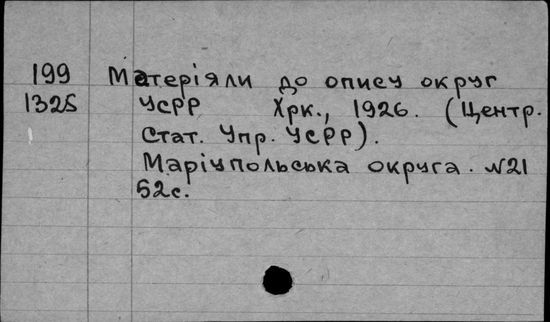 199 Матеріяли до опису округ
1325 УСРР Хрк., 1926. (Центр.
Стат. Упр. УСРР).
Маріупольська округа. №21
52с.